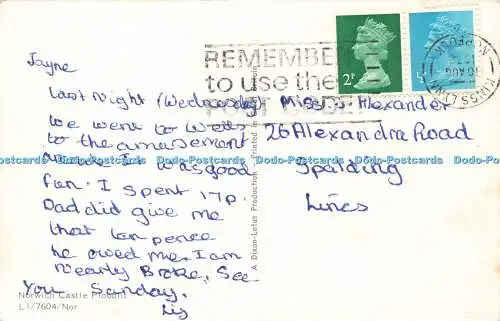 Jayne
Last night (Wednesday)
we went to Wells
to the amusement
arcade I was good
fan. I spent 17p.
Dad did give me
that ten pence
he owed me. I am
nearly Broke. See
You Sunday.
Liz
Norwich Castle Mount
L1/7604/Nor
A Dixon-Lotus Production Printed in
REMEMBER
to use the
POST CODE
2P
½P
KINGS LYNN
NORFOLK
30 AUG
Miss J. Alexander
26 Alexandra Road
Spalding
Lincs
Dodo-Postcards Dodo-Postcards Dodo-Postcards Dodo-Postcards Dodo-Postcards Dodo-Postcards